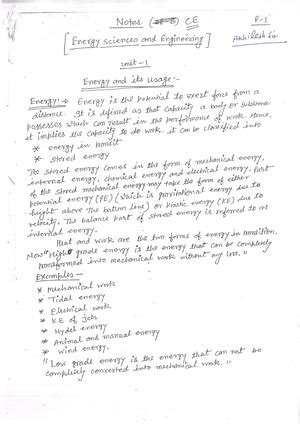 Notes CE
P-1
[Energy Sciences and Engineering]
Akhilesh Sir
Unit-1
Energy and its Usage:-
Energy:→ Energy is the potential to exert force from a
distance. It is defined as that capacity a body or substance
possesses which can result in the performance of work. Hence,
it implies the capacity to do work. it can be classified into
* energy in transit
* stored energy
The stored energy comes in the form of mechanical energy,
internal energy, chemical energy and electrical energy. Part
of the stored mechanical energy may take the form of either
potential energy (PE) (which is gravitational energy due to
height above the datum line) or kinetic energy (KE) due to
velocity. The balance part of stored energy is referred to as
internal energy.
Heat and work are the two forms of energy in transition.
Now "High grade energy is the energy that can be completely
transformed into mechanical work without any loss."
Examples-
* Mechanical work
* Tidal energy
* Electrical work
* KE of jets
* Hydel energy
* Animal and manual energy
* Wind energy.
"Low grade energy is the energy that can not be
completely converted into mechanical work."